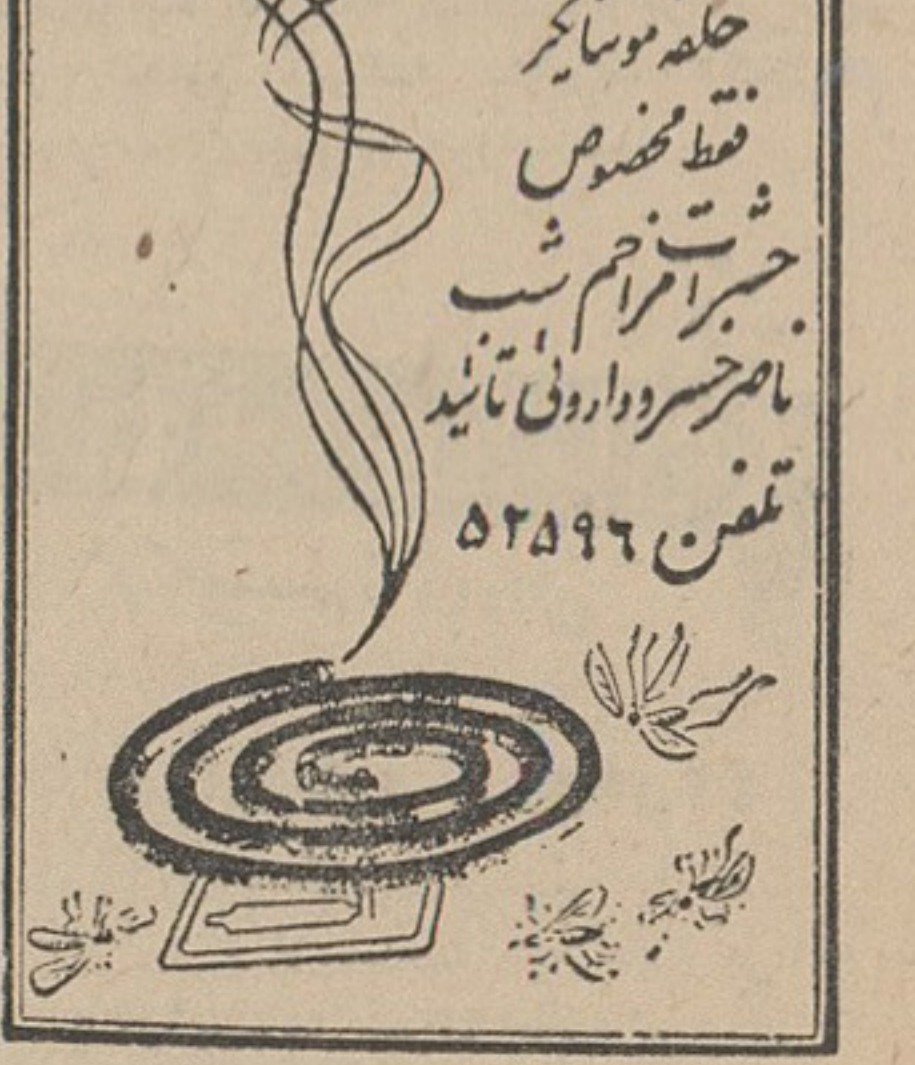 حلقه موسایکر
فقط مخصوص
حشرات مزاحم شب
ناصرخسرو داروئی تائید
تلفن ۵۲۵۹۶